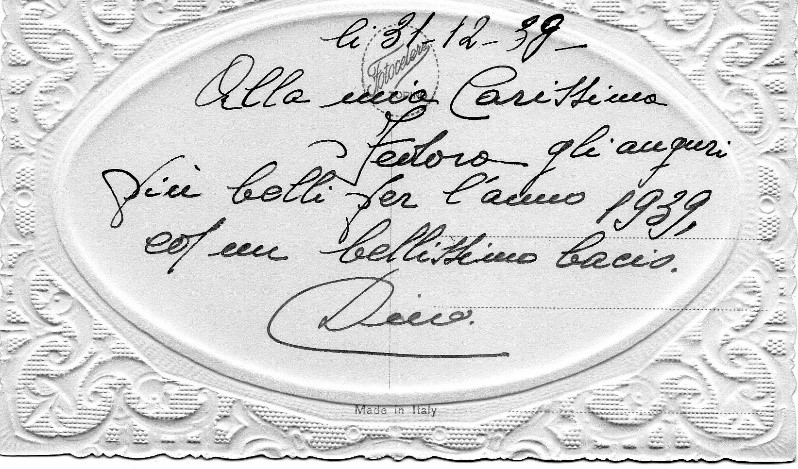 li 31-12-38-
Fotocelere
Alla mia Carissima
Fedora gli auguri
più belli per l'anno 1939,
con un bellissimo bacio.
Dino.
Made in Italy